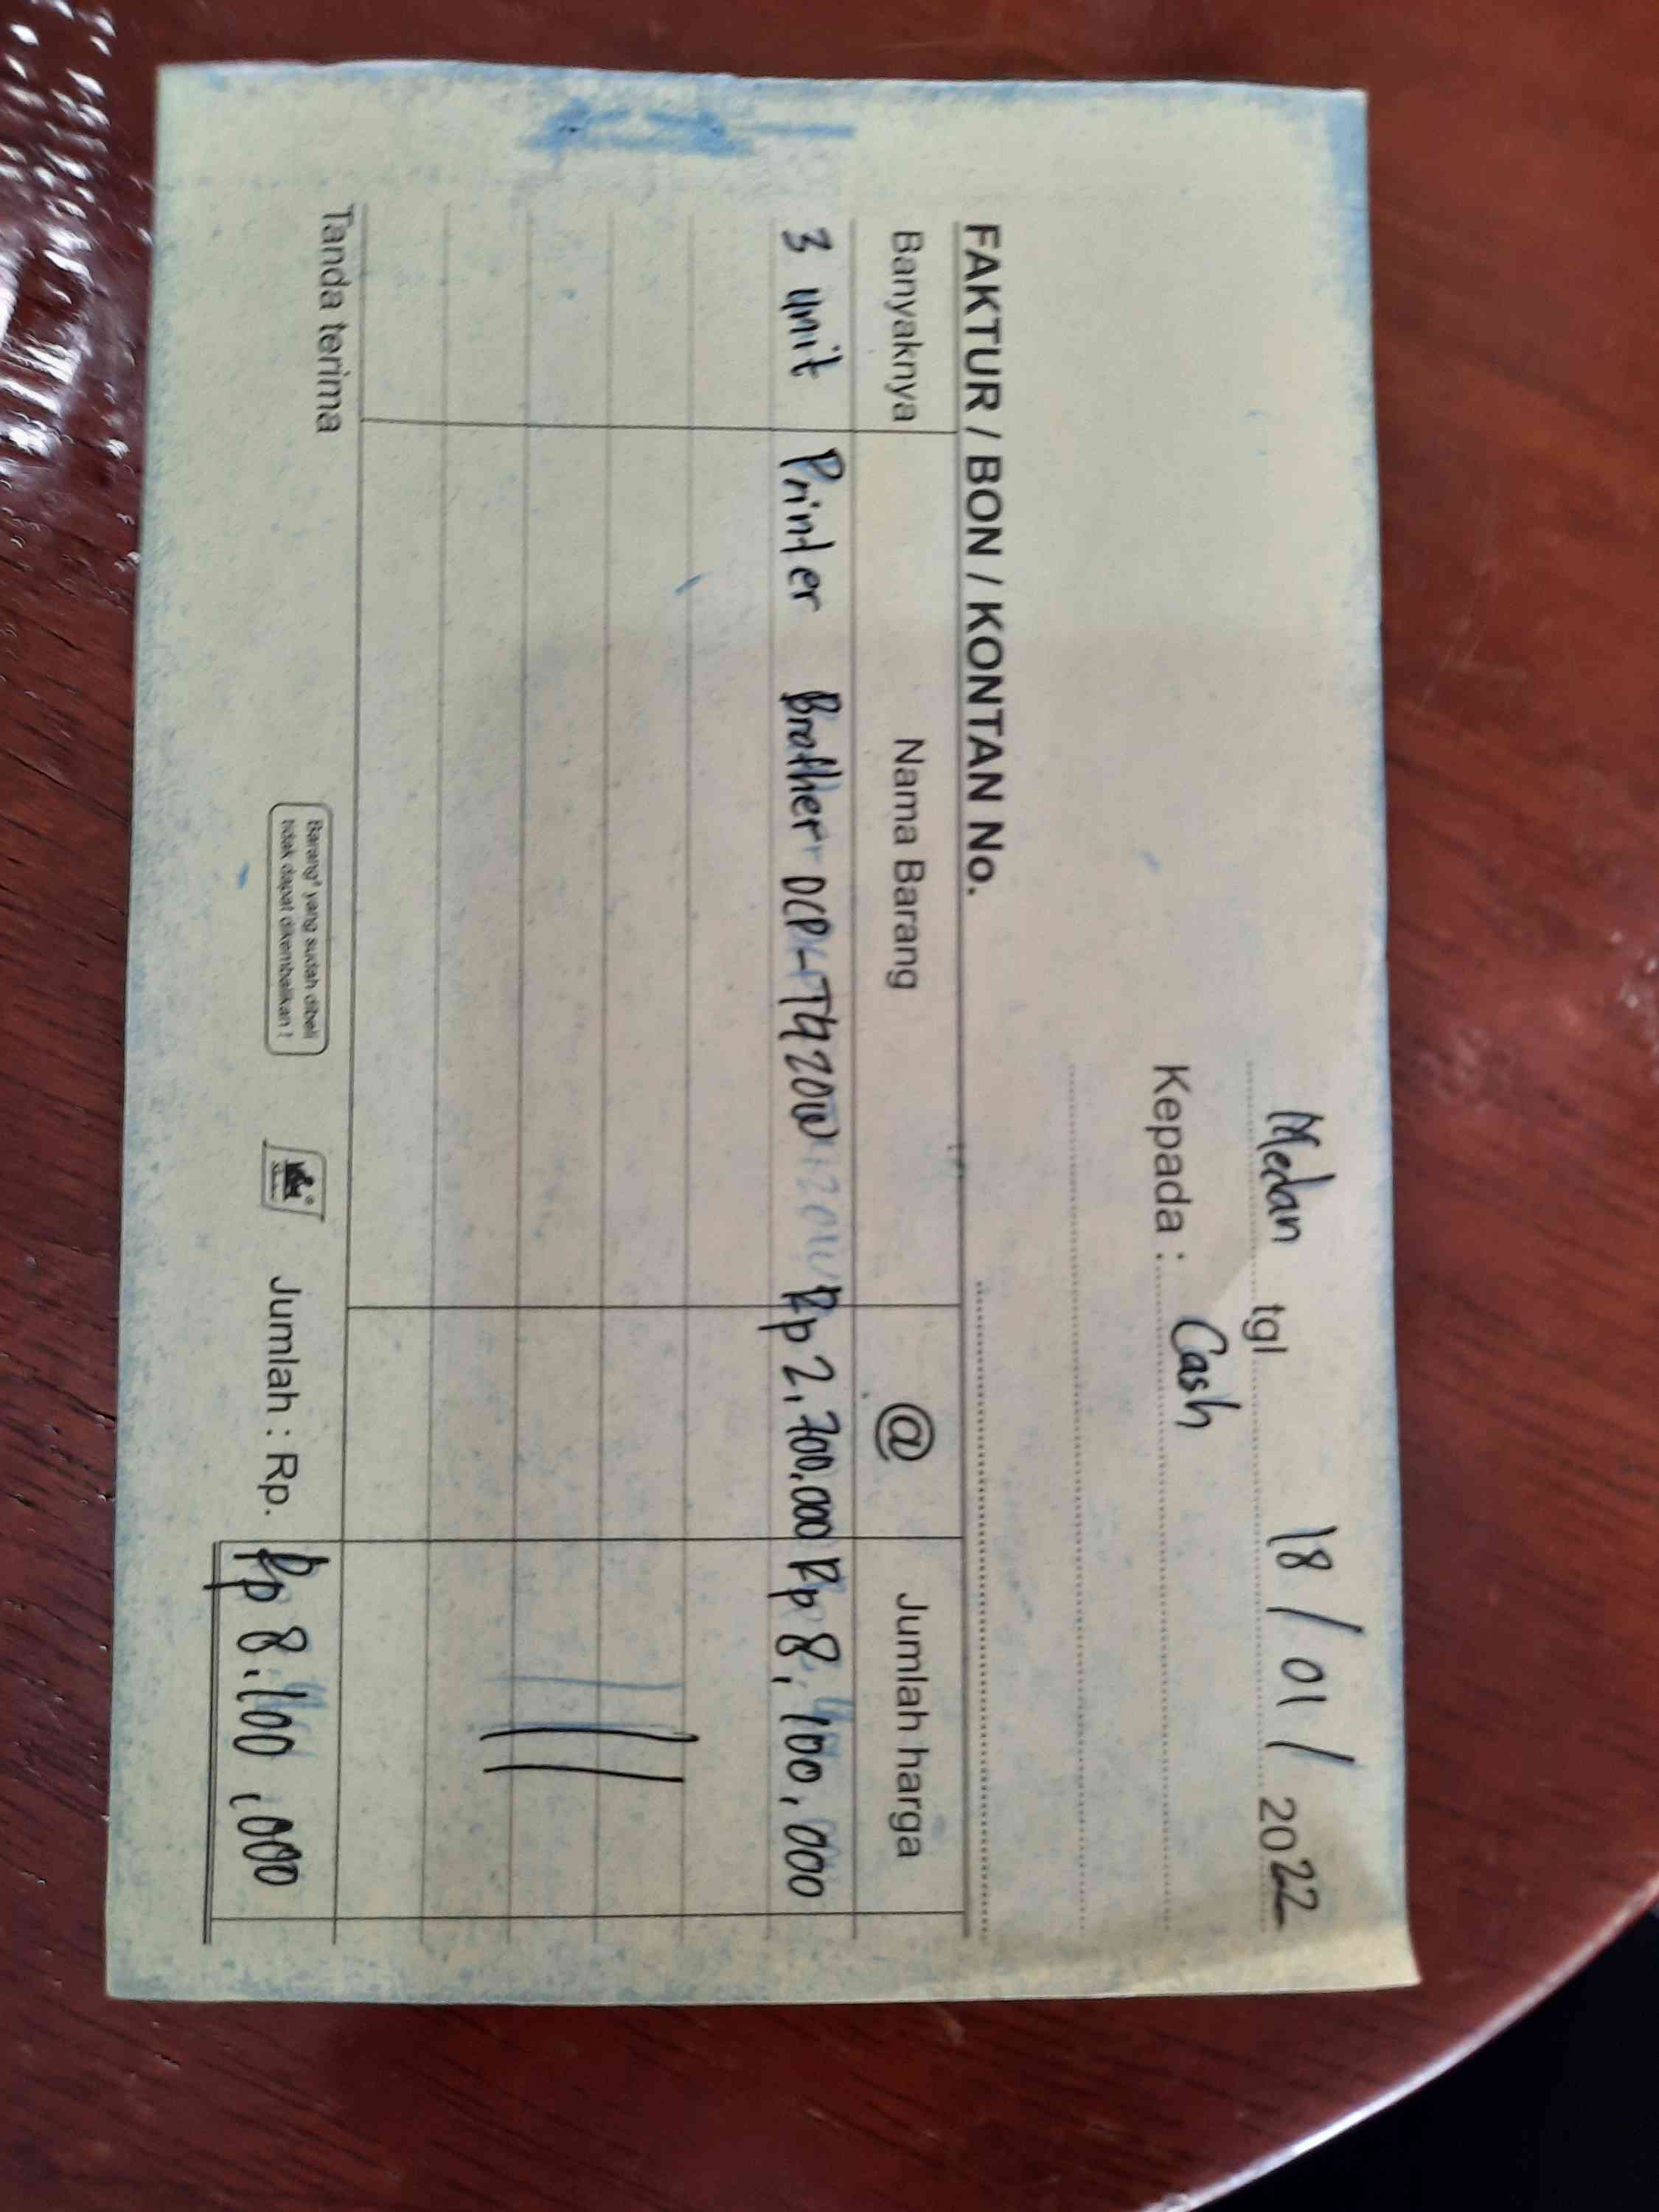 Medan tgl 18 / 01 / 2022
Kepada : Cash
FAKTUR / BON / KONTAN No.
Banyaknya Nama Barang @ Jumlah harga
3 unit Printer Brother DCP-T420W Rp 2.700.000 Rp 8.100.000
Tanda terima
Barang² yang sudah dibeli
tidak dapat dikembalikan !
Jumlah : Rp. Rp 8.100.000